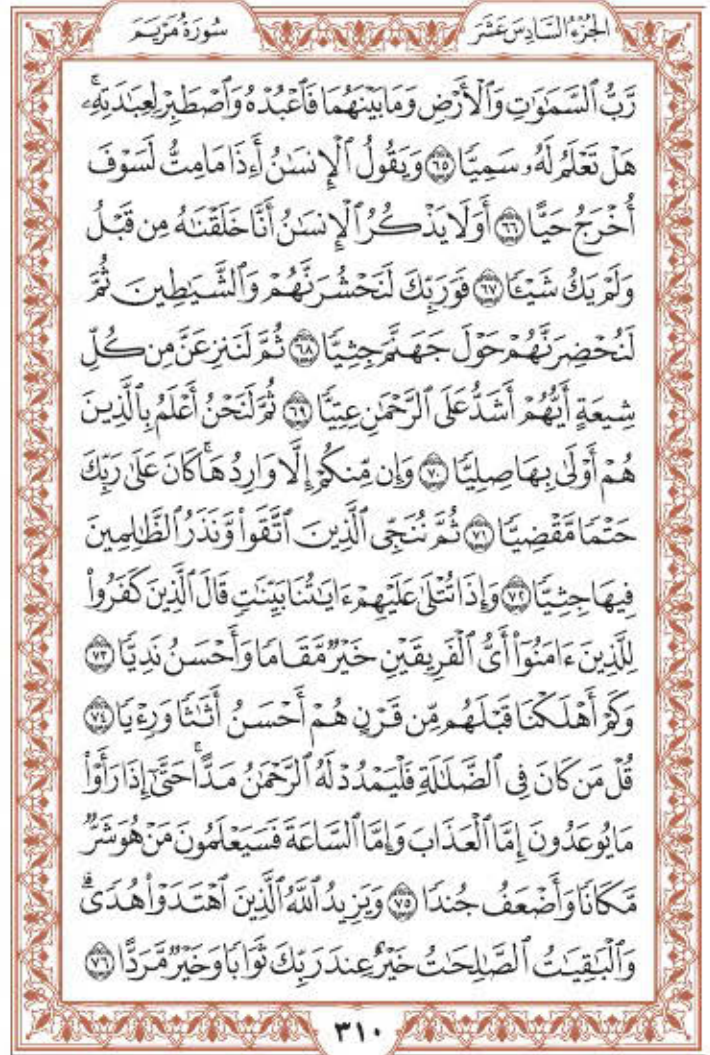 الجُزْءُ السَّادِسَ عَشَرَ سُورَةُ مَرْيَمَ
رَّبُّ ٱلسَّمَٰوَٰتِ وَٱلْأَرْضِ وَمَا بَيْنَهُمَا فَٱعْبُدْهُ وَٱصْطَبِرْ لِعِبَٰدَتِهِۦۚ
هَلْ تَعْلَمُ لَهُۥ سَمِيًّا ٦٥ وَيَقُولُ ٱلْإِنسَٰنُ أَءِذَا مَا مِتُّ لَسَوْفَ
أُخْرَجُ حَيًّا ٦٦ أَوَلَا يَذْكُرُ ٱلْإِنسَٰنُ أَنَّا خَلَقْنَٰهُ مِن قَبْلُ
وَلَمْ يَكُ شَيْـًٔا ٦٧ فَوَرَبِّكَ لَنَحْشُرَنَّهُمْ وَٱلشَّيَٰطِينَ ثُمَّ
لَنُحْضِرَنَّهُمْ حَوْلَ جَهَنَّمَ جِثِيًّا ٦٨ ثُمَّ لَنَنزِعَنَّ مِن كُلِّ
شِيعَةٍ أَيُّهُمْ أَشَدُّ عَلَى ٱلرَّحْمَٰنِ عِتِيًّا ٦٩ ثُمَّ لَنَحْنُ أَعْلَمُ بِٱلَّذِينَ
هُمْ أَوْلَىٰ بِهَا صِلِيًّا ٧٠ وَإِن مِّنكُمْ إِلَّا وَارِدُهَاۚ كَانَ عَلَىٰ رَبِّكَ
حَتْمًا مَّقْضِيًّا ٧١ ثُمَّ نُنَجِّى ٱلَّذِينَ ٱتَّقَوا۟ وَّنَذَرُ ٱلظَّٰلِمِينَ
فِيهَا جِثِيًّا ٧٢ وَإِذَا تُتْلَىٰ عَلَيْهِمْ ءَايَٰتُنَا بَيِّنَٰتٍ قَالَ ٱلَّذِينَ كَفَرُوا۟
لِلَّذِينَ ءَامَنُوٓا۟ أَىُّ ٱلْفَرِيقَيْنِ خَيْرٌ مَّقَامًا وَأَحْسَنُ نَدِيًّا ٧٣
وَكَمْ أَهْلَكْنَا قَبْلَهُم مِّن قَرْنٍ هُمْ أَحْسَنُ أَثَٰثًا وَرِءْيًا ٧٤
قُلْ مَن كَانَ فِى ٱلضَّلَٰلَةِ فَلْيَمْدُدْ لَهُ ٱلرَّحْمَٰنُ مَدًّاۚ حَتَّىٰٓ إِذَا رَأَوْا۟
مَا يُوعَدُونَ إِمَّا ٱلْعَذَابَ وَإِمَّا ٱلسَّاعَةَ فَسَيَعْلَمُونَ مَنْ هُوَ شَرٌّ
مَّكَانًا وَأَضْعَفُ جُندًا ٧٥ وَيَزِيدُ ٱللَّهُ ٱلَّذِينَ ٱهْتَدَوْا۟ هُدًىۗ
وَٱلْبَٰقِيَٰتُ ٱلصَّٰلِحَٰتُ خَيْرٌ عِندَ رَبِّكَ ثَوَابًا وَخَيْرٌ مَّرَدًّا ٧٦
٣١٠